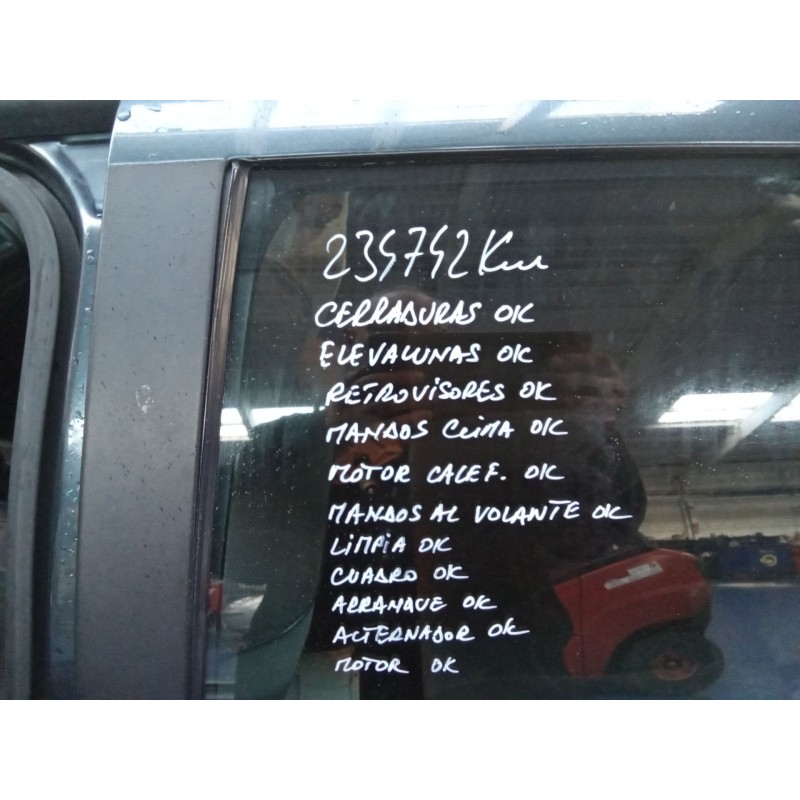 234742 Km
CERRADURAS OK
ELEVALUNAS OK
RETROVISORES OK
MANDOS CLIMA OK
MOTOR CALEF. OK
MANDOS AL VOLANTE OK
LIMPIA OK
CUADRO OK
ARRANQUE OK
ALTERNADOR OK
MOTOR OK